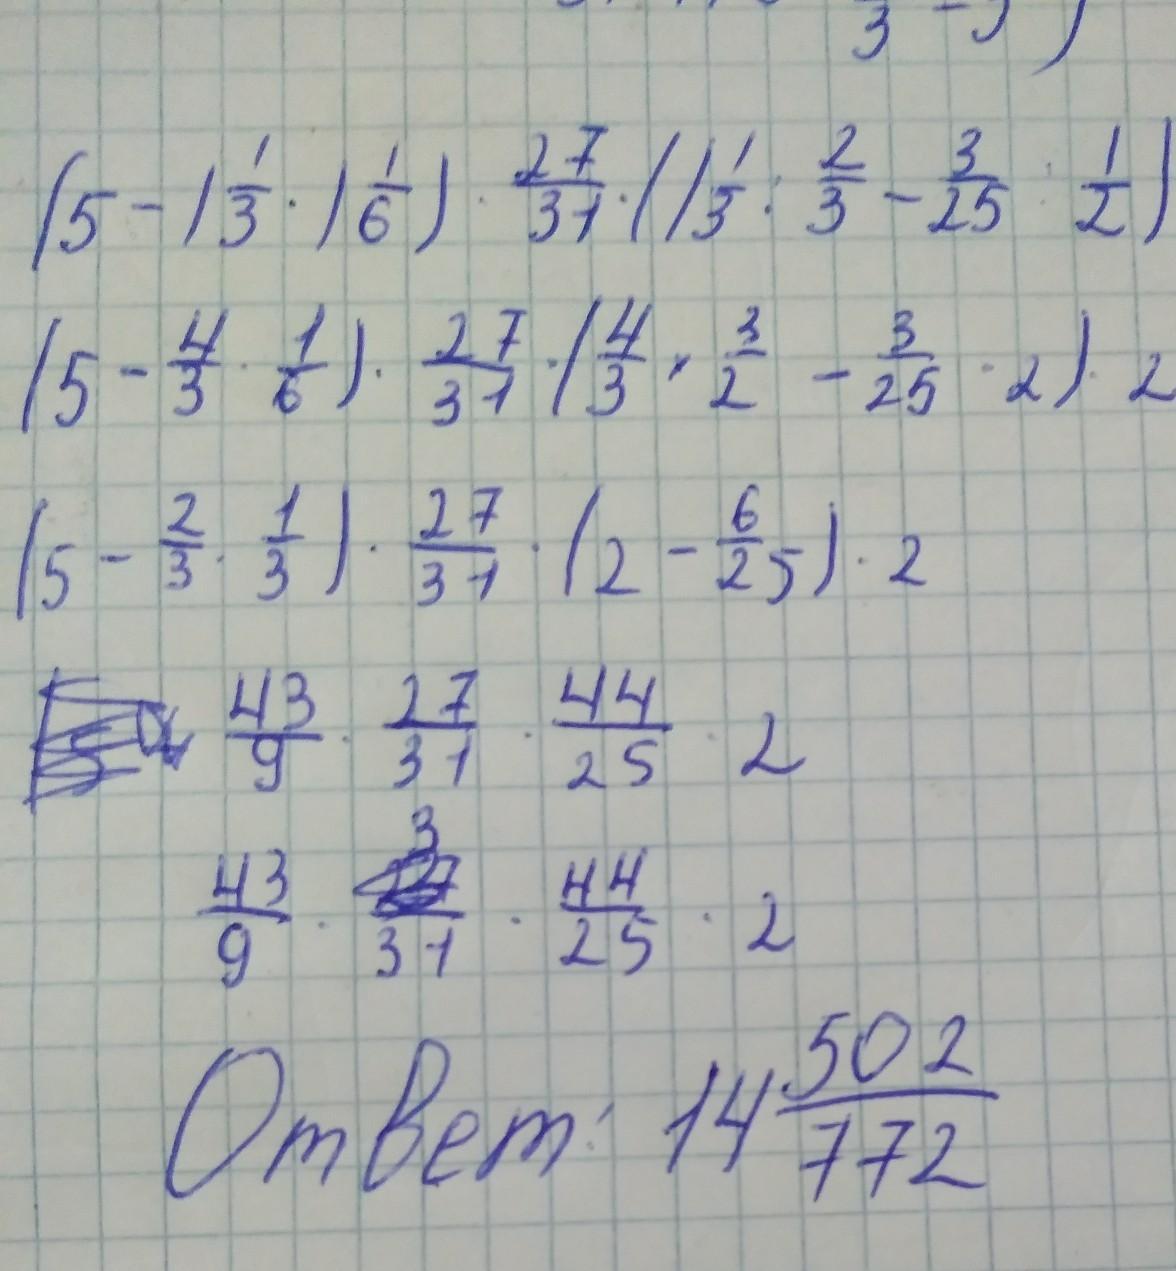 3 - 5)
(5 - 1 1/3 · 1 1/6) · 27/31 · (1 1/3 : 2/3 - 3/25 : 1/2)
(5 - 4/3 · 1/6) · 27/31 · (4/3 × 3/2 - 3/25 · 2) · 2
(5 - 2/3 · 1/3) · 27/31 · (2 - 6/25) · 2
43/9 · 27/31 · 44/25 · 2
43/9 · 3/31 · 44/25 · 2
Ответ: 14 502/772